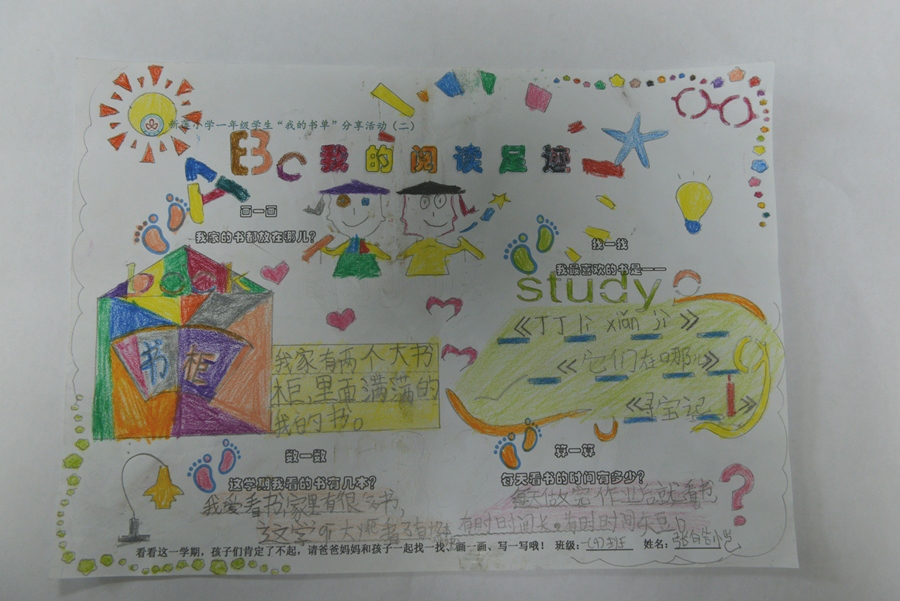 新莲小学一年级学生“我的书单”分享活动（二）
ABC 我的阅读足迹
画一画
我家的书都放在哪儿？
找一找
我最喜欢的书是——
study
《丁丁lì xiǎn jì》
《它们在哪儿》
《寻宝记》
书柜
我家有两个大书
柜，里面满满的
我的书。
数一数
这学期我看的书有几本？
我爱看书，家里有很多书，
算一算
每天看书的时间有多少？
每天做完作业后就看书
有时时间长，有时时间短。
看看这一学期，孩子们肯定了不起，请爸爸妈妈和孩子一起找一找、画一画、写一写哦！ 班级： 姓名：